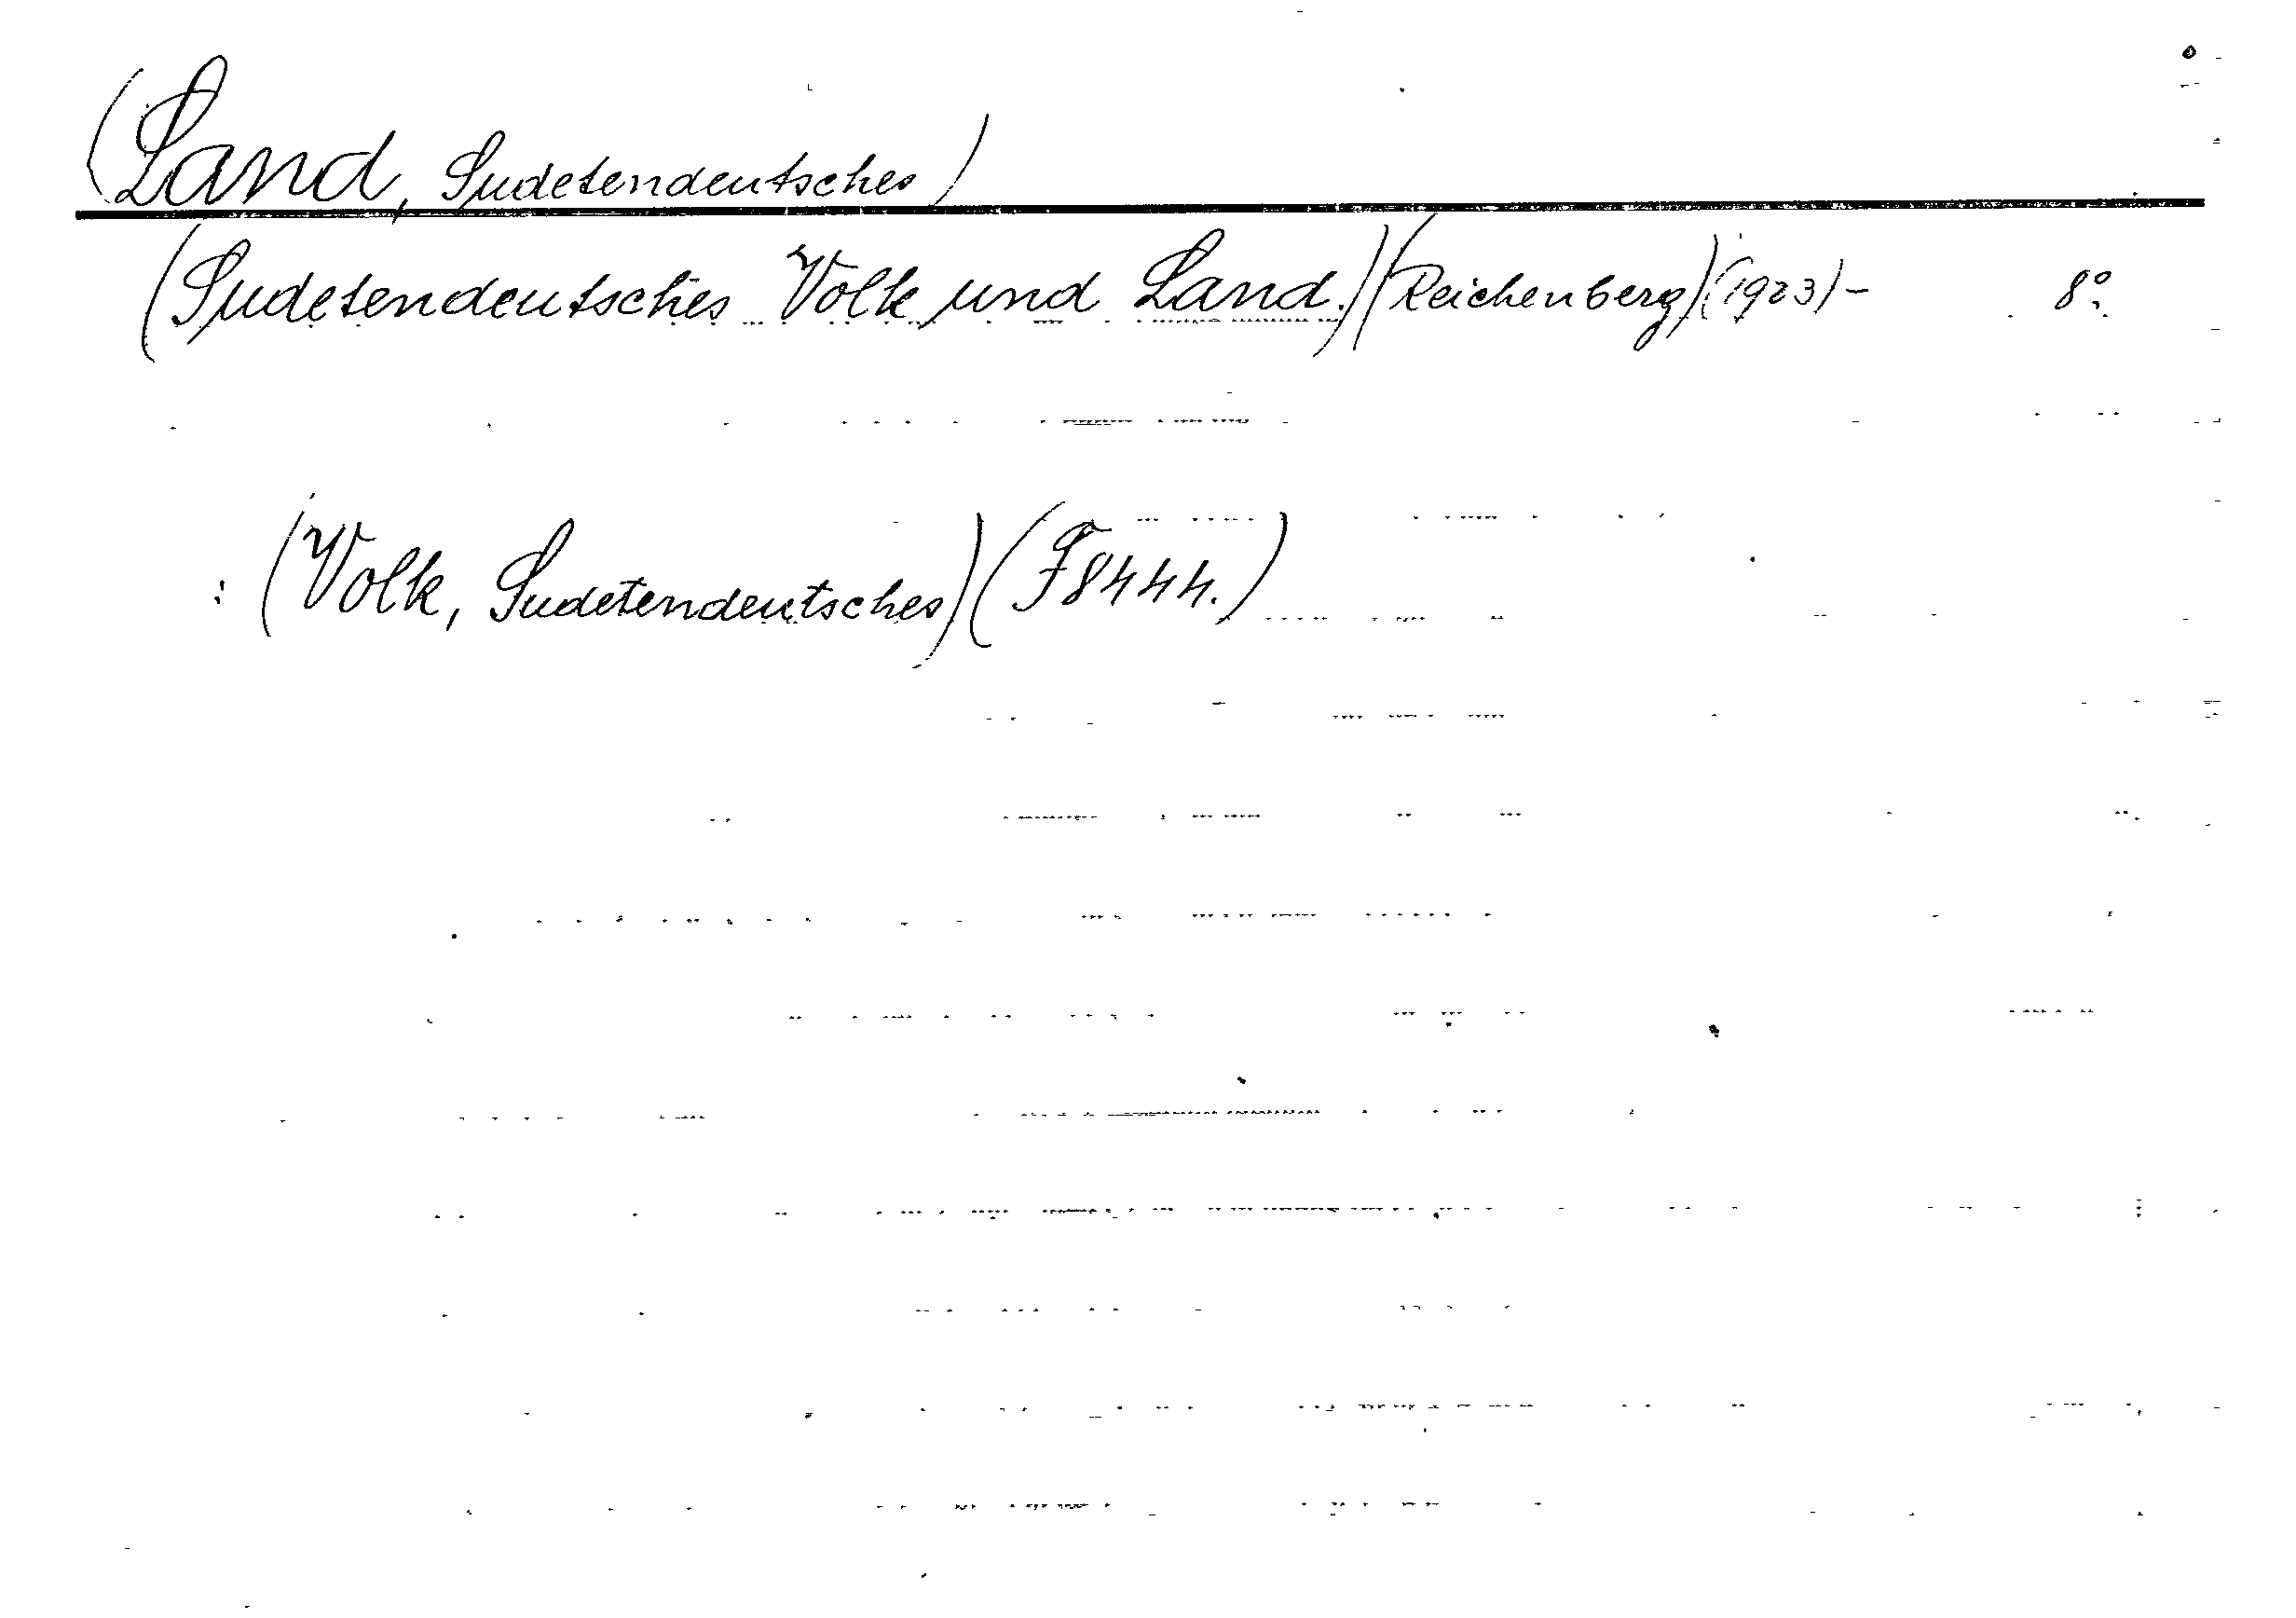 (Land, Sudetendeutsches)
(Sudetendeutsches Volk und Land.)(Reichenberg)(1923)- 8°.
: (Volk, Sudetendeutsches)(F8444.)